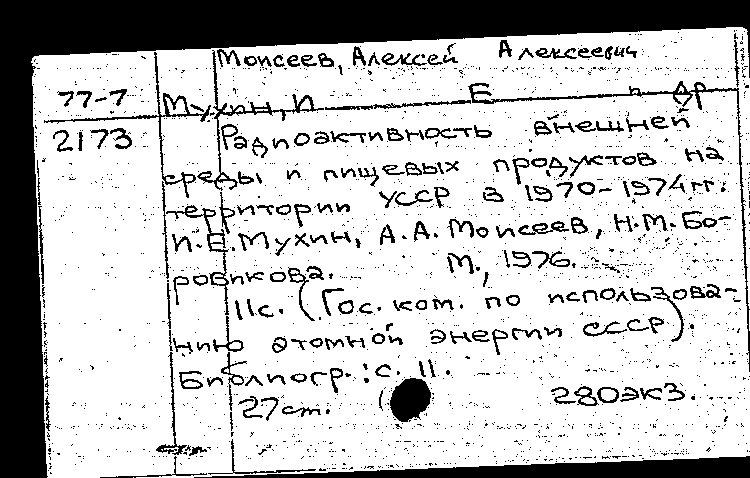 Моисеев, Алексей Алексеевич
77-7 Мухин, И Е и др
2173 Радиоактивность внешней
среды и пищевых продуктов на
территории УССР в 1970-1974 гг.
И.Е.Мухин, А.А.Моисеев, Н.М.Бо-
ровикова. М., 1976.
11с. (Гос. ком. по использова-
нию атомной энергии СССР).
Библиогр.: с. 11.
27см. 280экз.